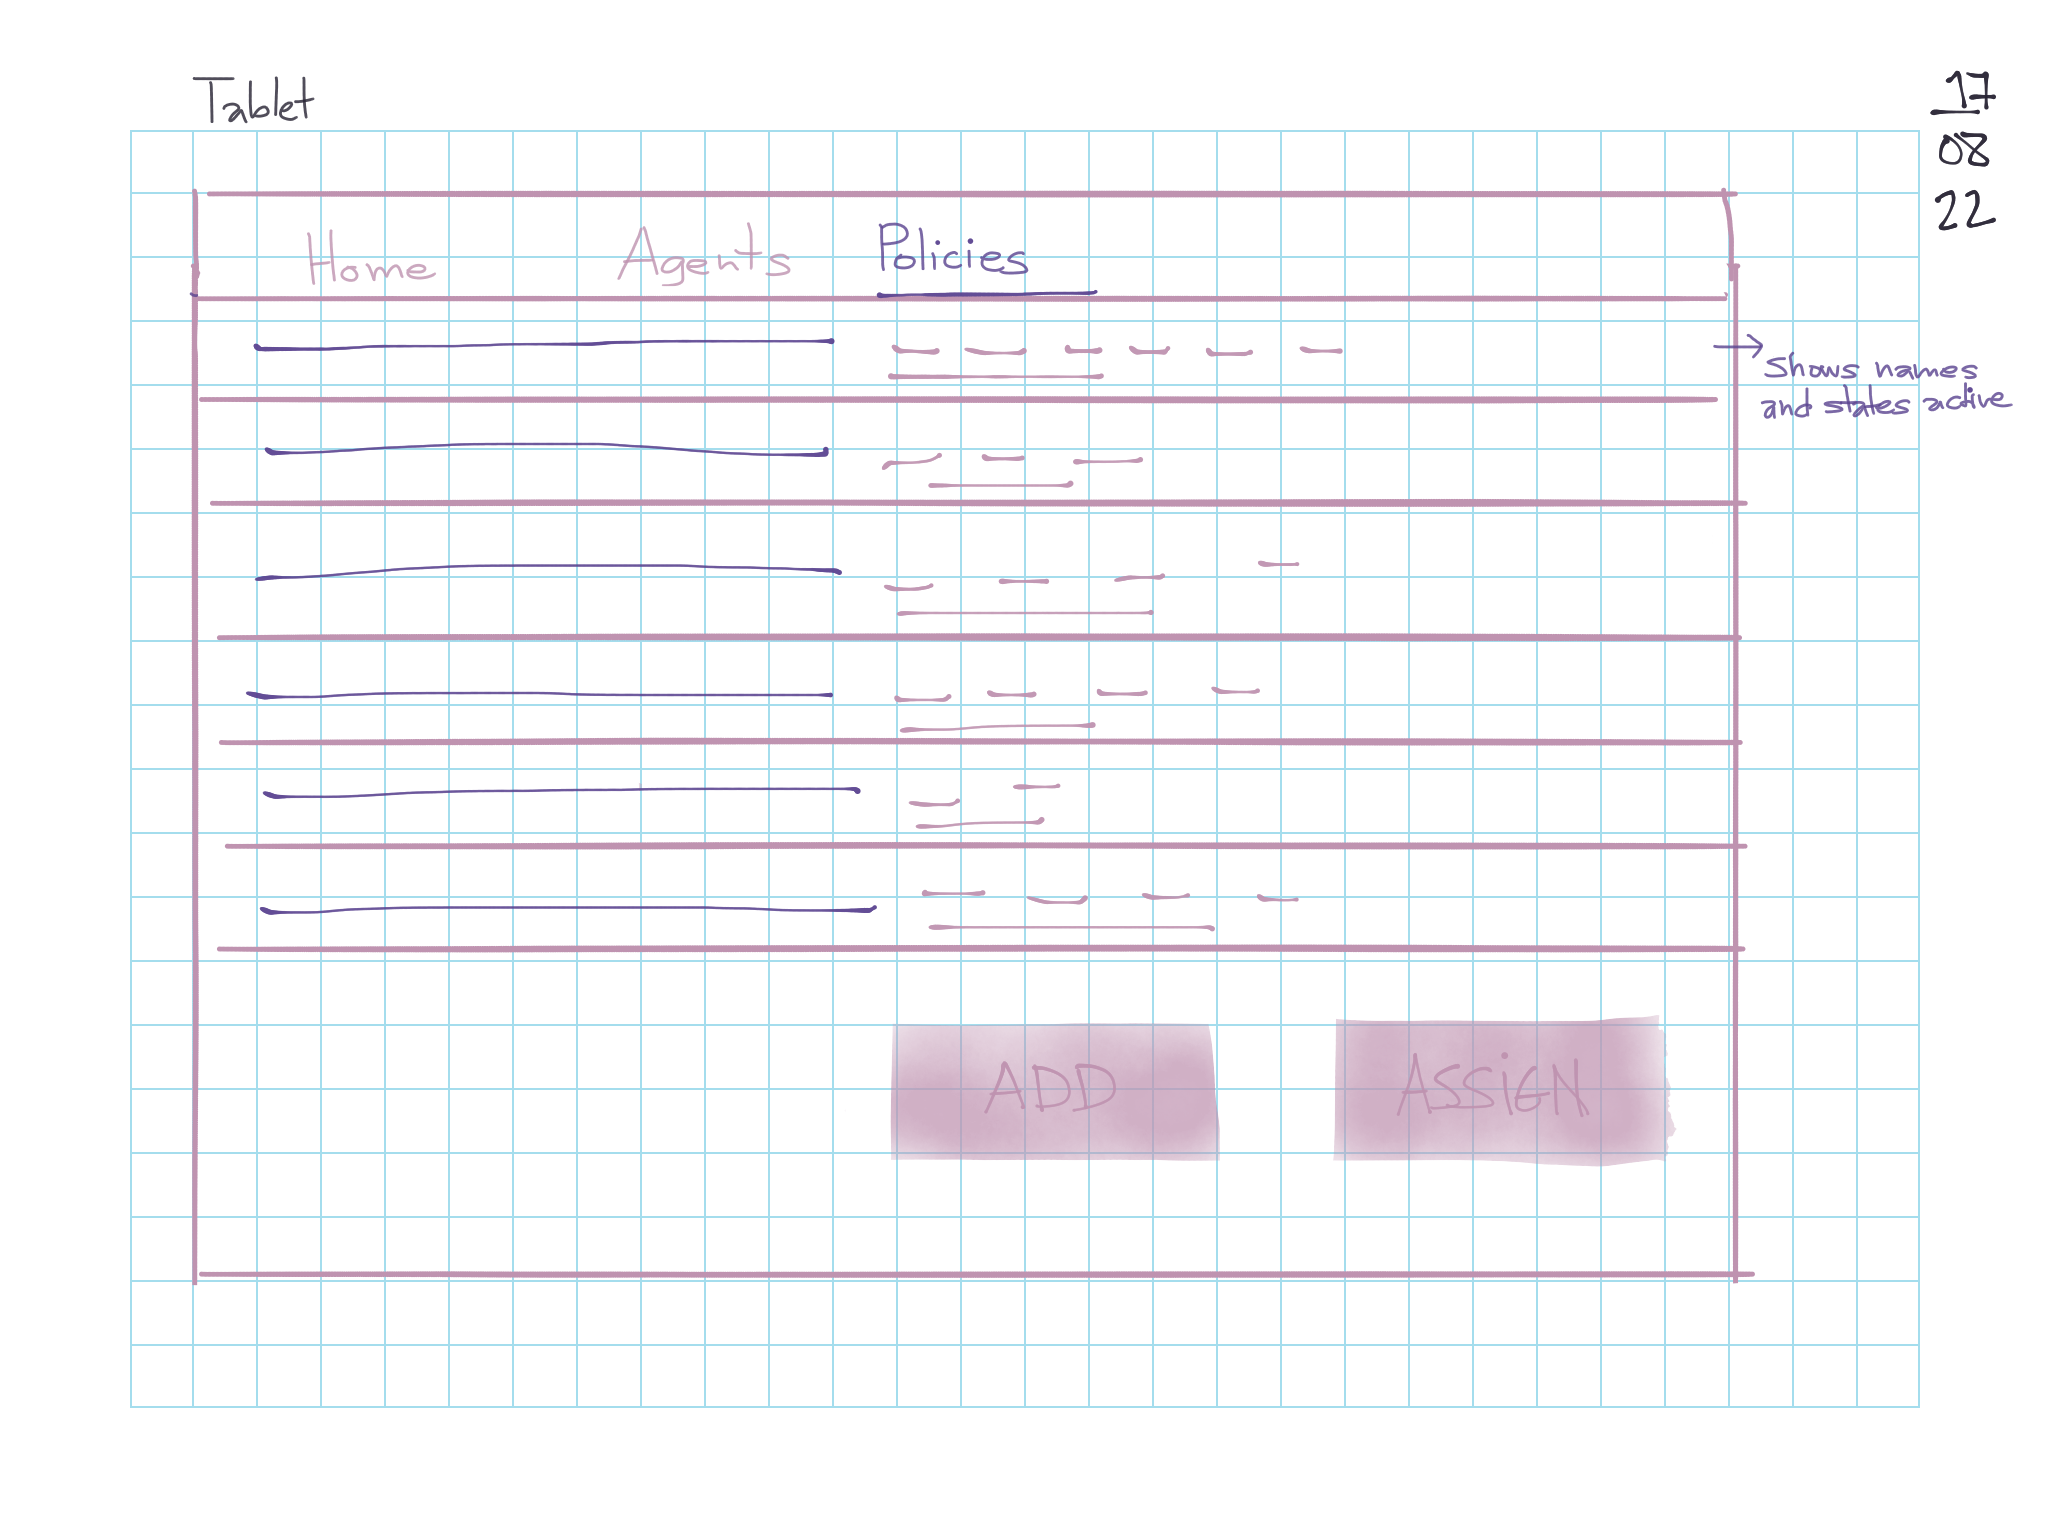 Tablet
17
08
22
Home Agents Policies
Shows names
and states active
ADD ASSiGN